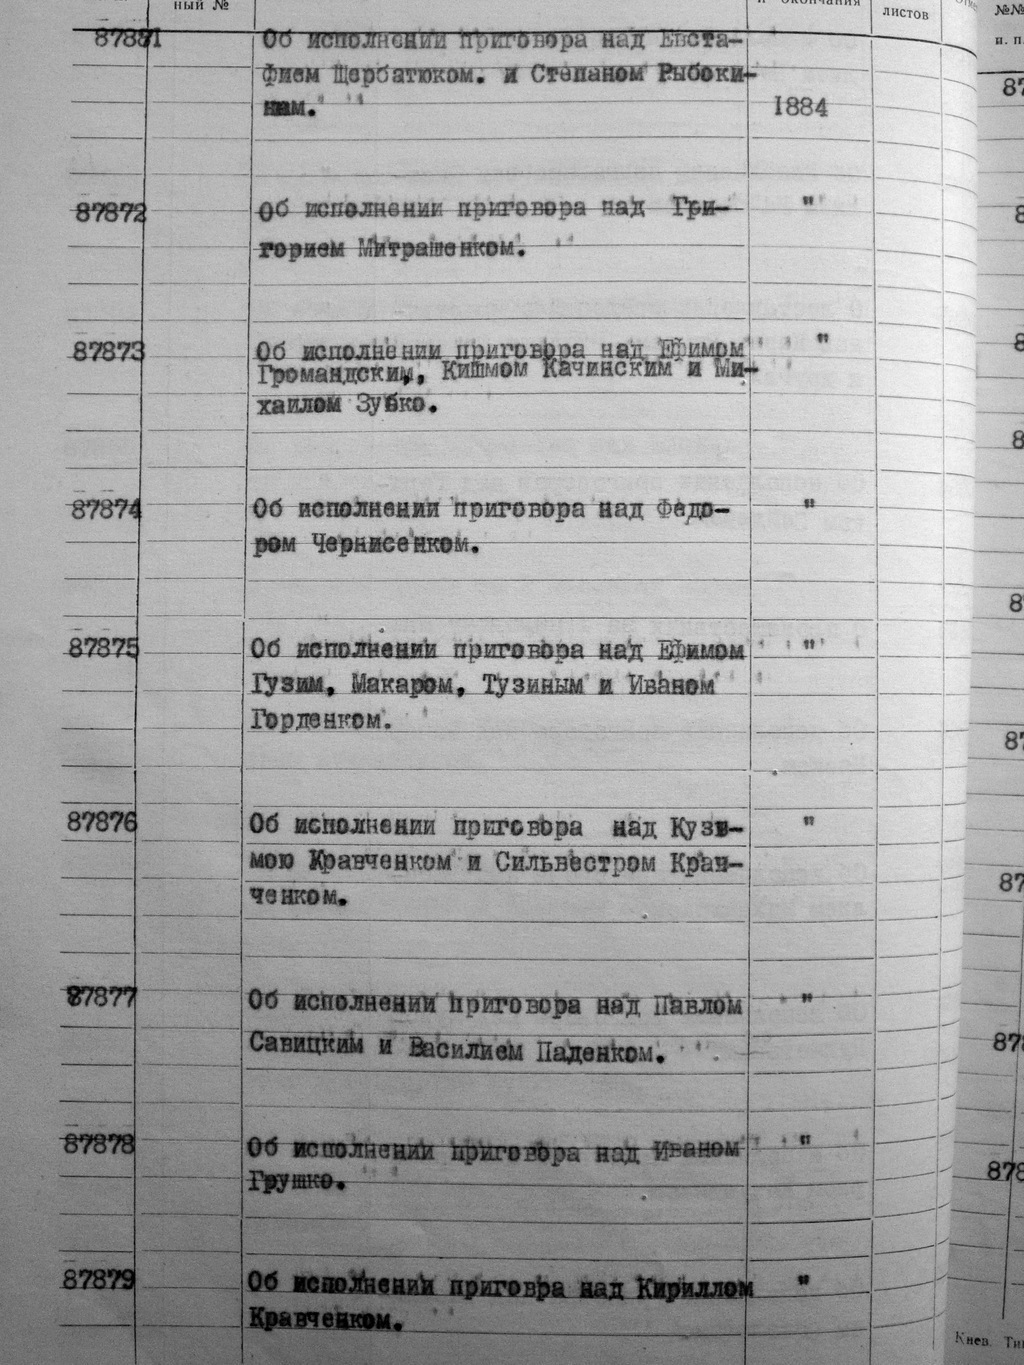 ный № и окончания листов №№
и. п.
87871 Об исполнении приговора над Евста-
фием Щербатюком. и Степаном Рыбоки-
ным. 1884
87872 Об исполнении приговора над Гри- "
горием Митрашенком.
87873 Об исполнении приговора над Ефимом "
Громандским, Кишмом Качинским и Ми-
хаилом Зубко.
87874 Об исполнении приговора над Федо- "
ром Чернисенком.
87875 Об исполнении приговора над Ефимом "
Гузим, Макаром, Тузиным и Иваном
Горденком.
87876 Об исполнении приговора над Кузь- "
мою Кравченком и Сильвестром Крав-
ченком.
87877 Об исполнении приговора над Павлом "
Савицким и Василием Паденком.
87878 Об исполнении приговора над Иваном "
Грушко.
87879 Об исполнении приговра над Кириллом "
Кравченком.
Киев. Ти